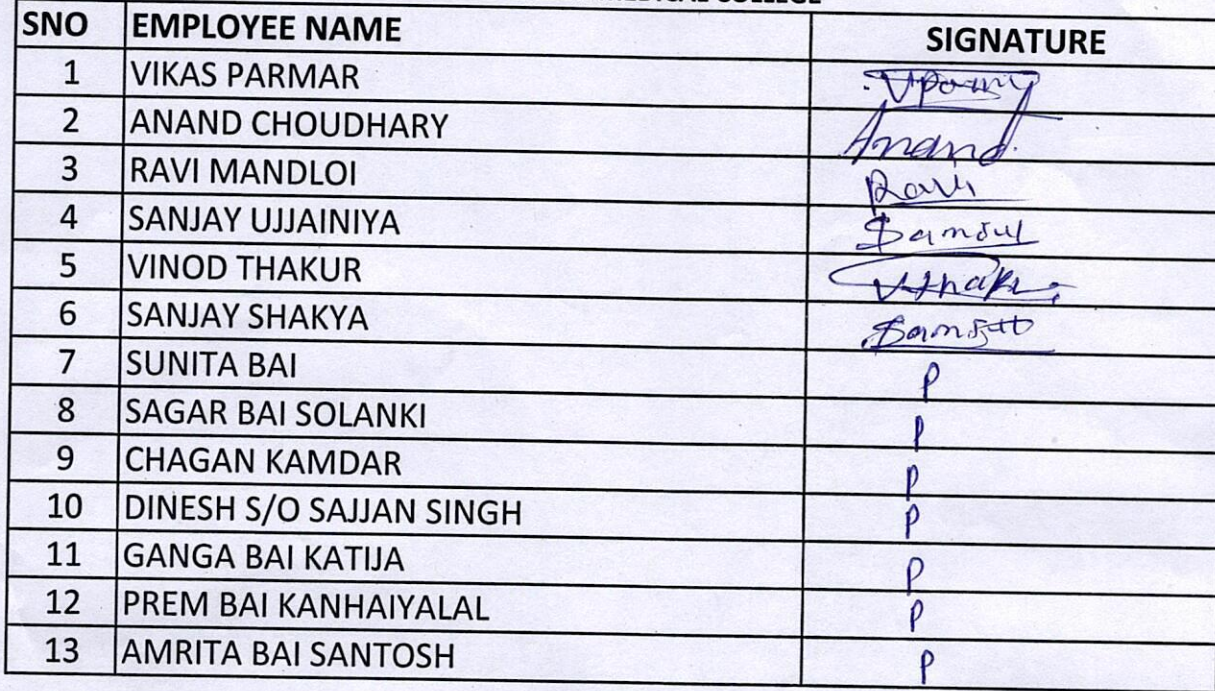 COLLEGE
SNO EMPLOYEE NAME SIGNATURE
1 VIKAS PARMAR
2 ANAND CHOUDHARY Anand.
3 RAVI MANDLOI Ravi
4 SANJAY UJJAINIYA
5 VINOD THAKUR
6 SANJAY SHAKYA
7 SUNITA BAI P
8 SAGAR BAI SOLANKI P
9 CHAGAN KAMDAR P
10 DINESH S/O SAJJAN SINGH P
11 GANGA BAI KATIJA P
12 PREM BAI KANHAIYALAL P
13 AMRITA BAI SANTOSH P